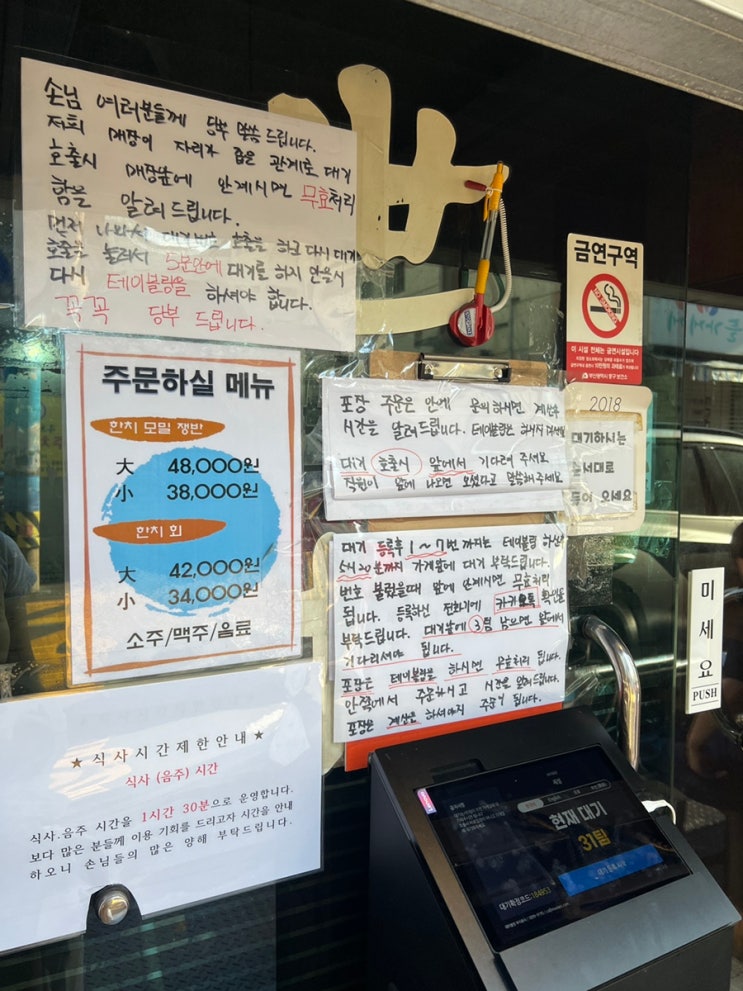 손님 여러분들께 당부 말씀 드립니다.
저희 매장이 자리가 좁은 관계로 대기
호출시 매장앞에 안계시면 무효처리
함을 알려 드립니다.
먼저 나와서 호출을 하고 다시 대기
호출을 눌러서 5분안에 대기를 하지 않을시
다시 테이블링을 하셔야 합니다.
꼭꼭 당부 드립니다.
금연구역
이 시설 전체는 금연시설입니다
부산광역시 중구 보건소
주문하실 메뉴
한치 모밀 쟁반
大 48,000원
小 38,000원
한치 회
大 42,000원
小 34,000원
소주/맥주/음료
포장 주문은 안에 문의하시면 계산후
시간을 알려드립니다. 테이블링은 하시지 마세요
대기 호출시 앞에서 기다려 주세요
직원이 앞에 나오면 오셨다고 말씀해주세요
2018
대기하시는
순서대로
들어 오세요
대기 등록후 1~7번 까지는 테이블링 하신후
20분까지 가게앞에 대기 부탁드립니다.
번호 불렀을때 앞에 안계시면 무효처리
됩니다. 등록하신 전화기에 카카오톡 확인을
부탁드립니다. 대기앞에 3팀 남으면 앞에서
기다리셔야 됩니다.
포장은 테이블링을 하시면 무효처리 됩니다.
안쪽에서 주문하시고 시간을 알려드립니다.
포장은 계산을 하셔야지 주문이 됩니다.
미세요
PUSH
★ 식사시간제한안내 ★
식사 (음주) 시간
식사.음주 시간을 1시간 30분으로 운영합니다.
보다 많은 분들께 이용 기회를 드리고자 시간을 안내
하오니 손님들의 많은 양해 부탁드립니다.
현재 대기
31팀
대기 등록 시작
대기확정코드: 184953